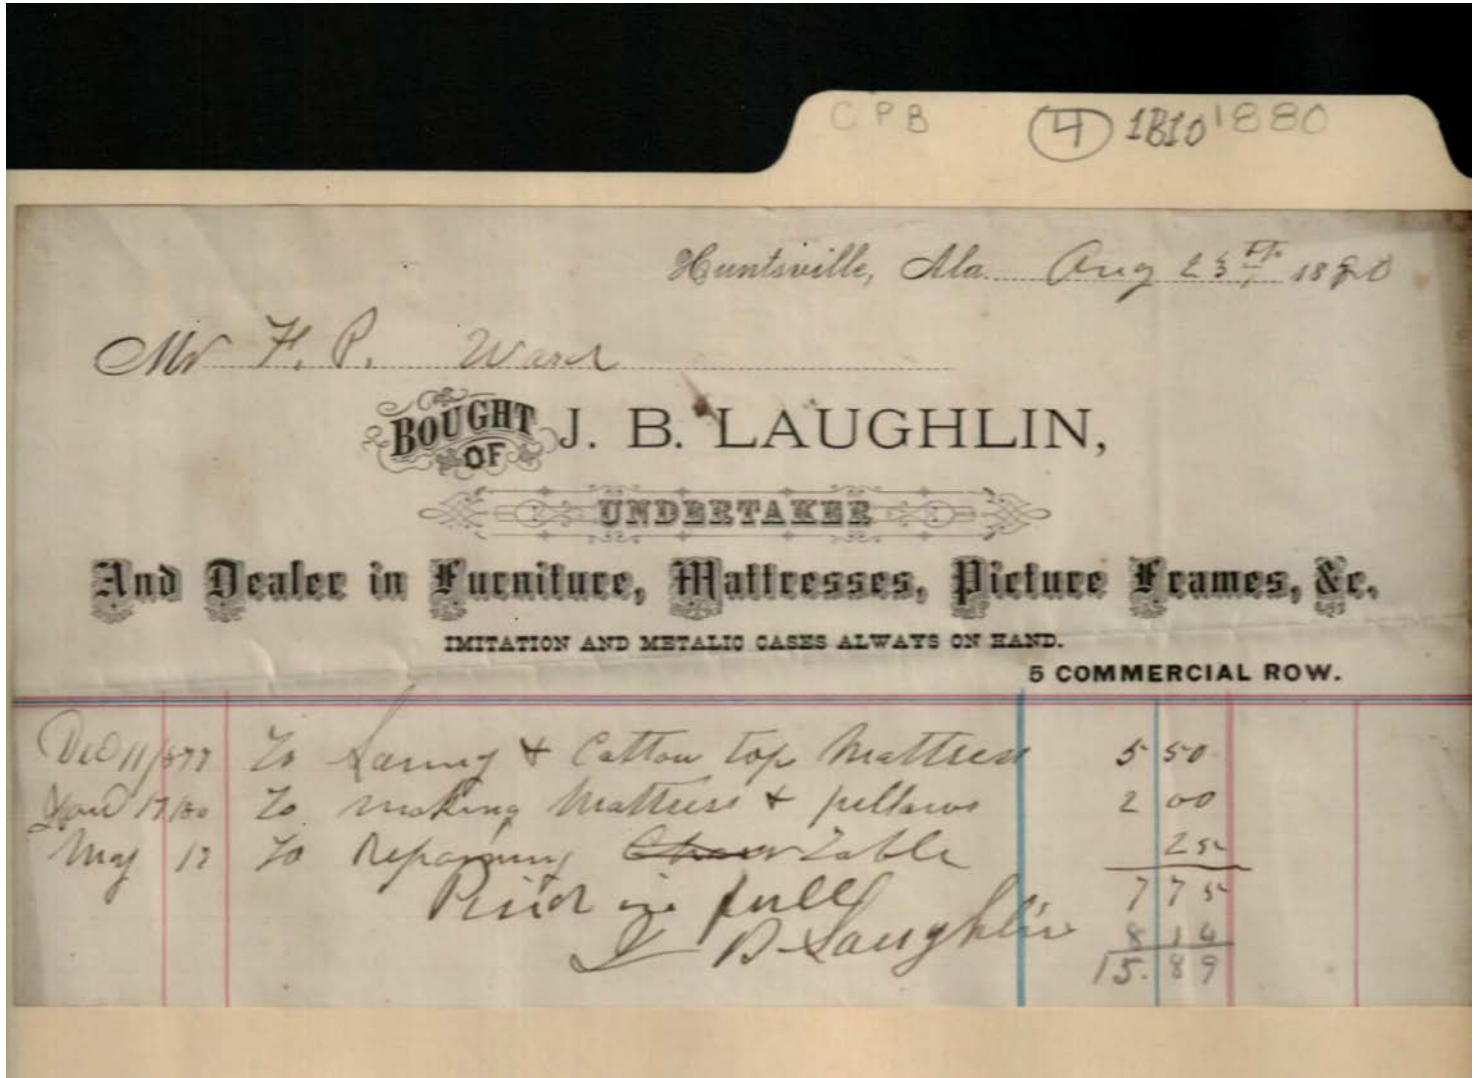 CPB 4 1B10 1880
Huntsville, Ala. Aug 23 1880
Mr F. P. Ward
BOUGHT OF J. B. LAUGHLIN,
UNDERTAKER
And Dealer in Furniture, Mattresses, Picture Frames, &c.
IMITATION AND METALIC CASES ALWAYS ON HAND.
5 COMMERCIAL ROW.
Dec 11/877 To & Cotton top Mattress 5 50
17/80 To making Mattress & pillows 2 00
May 12 To Repairing Table 25
Paid in full 7 75
J B Laughlin 8 14
15.89